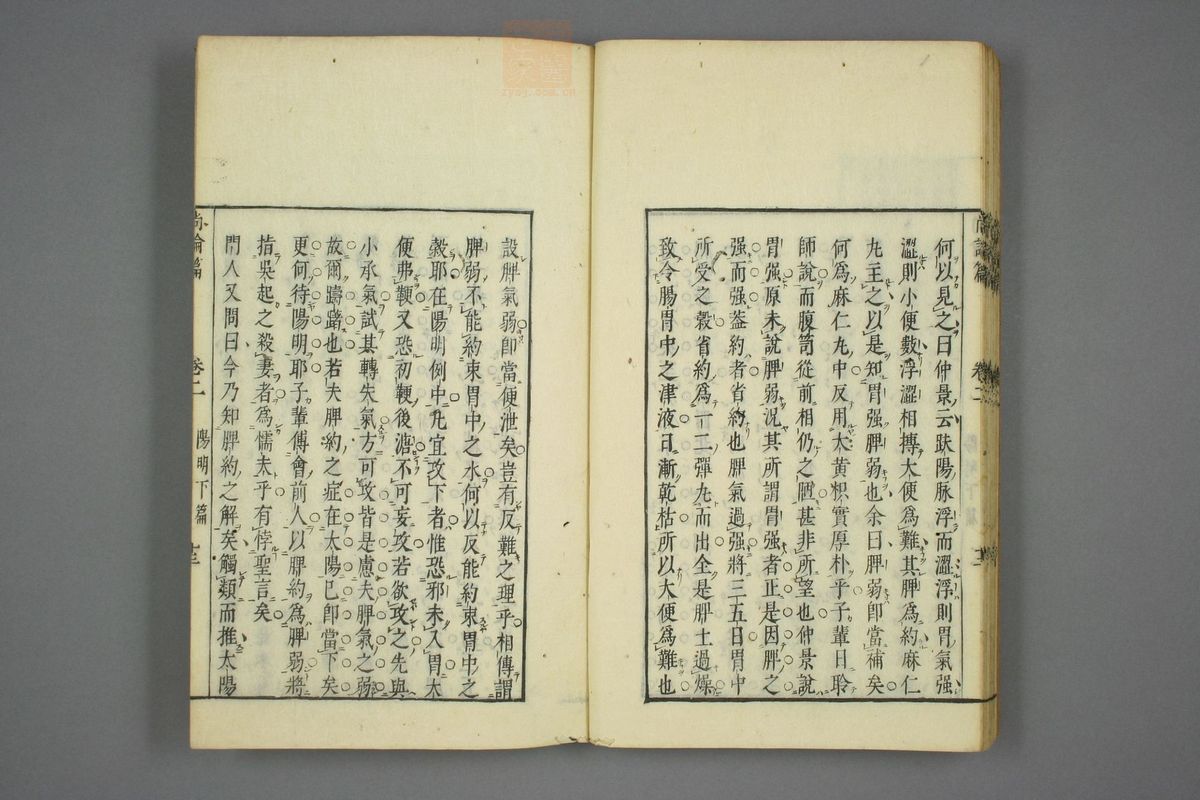 尚論篇 卷二
何以見之曰仲景云趺陽脉浮而澀浮則胃氣强
澀則小便數浮澀相摶大便爲難其脾爲約麻仁
丸主之以是知胃强脾弱也余曰脾弱卽當補矣
何爲麻仁丸中反用大黃枳實厚朴乎子輩日聆
師說而腹笥從前相仍之陋甚非所望也仲景說
胃强原未說脾弱況其所謂胃强者正是因脾之
强而强盖約者省約也脾氣過强將三五日胃中
所受之穀省約爲一二彈丸而出全是脾土過燥
致令腸胃中之津液日漸乾枯所以大便爲難也
設脾氣弱卽當便泄矣豈有反難之理乎相傳謂
脾弱不能約束胃中之水何以反能約束胃中之
穀耶在陽明例中凡宜攻下者惟恐邪未入胃大
便弗鞕又恐初鞕後溏不可妄攻若欲攻之先與
小承氣試其轉失氣方可攻皆是慮夫脾氣之弱
故爾躊躇也若夫脾約之症在太陽已卽當下矣
更何待陽明耶子輩傅會前人以脾約爲脾弱將
指吳起之殺妻者爲懦夫乎有悖聖言矣
門人又問曰今乃知脾約之解矣觸類而推太陽
尚論篇 卷二 陽明下篇 十三
zysj.com.cn